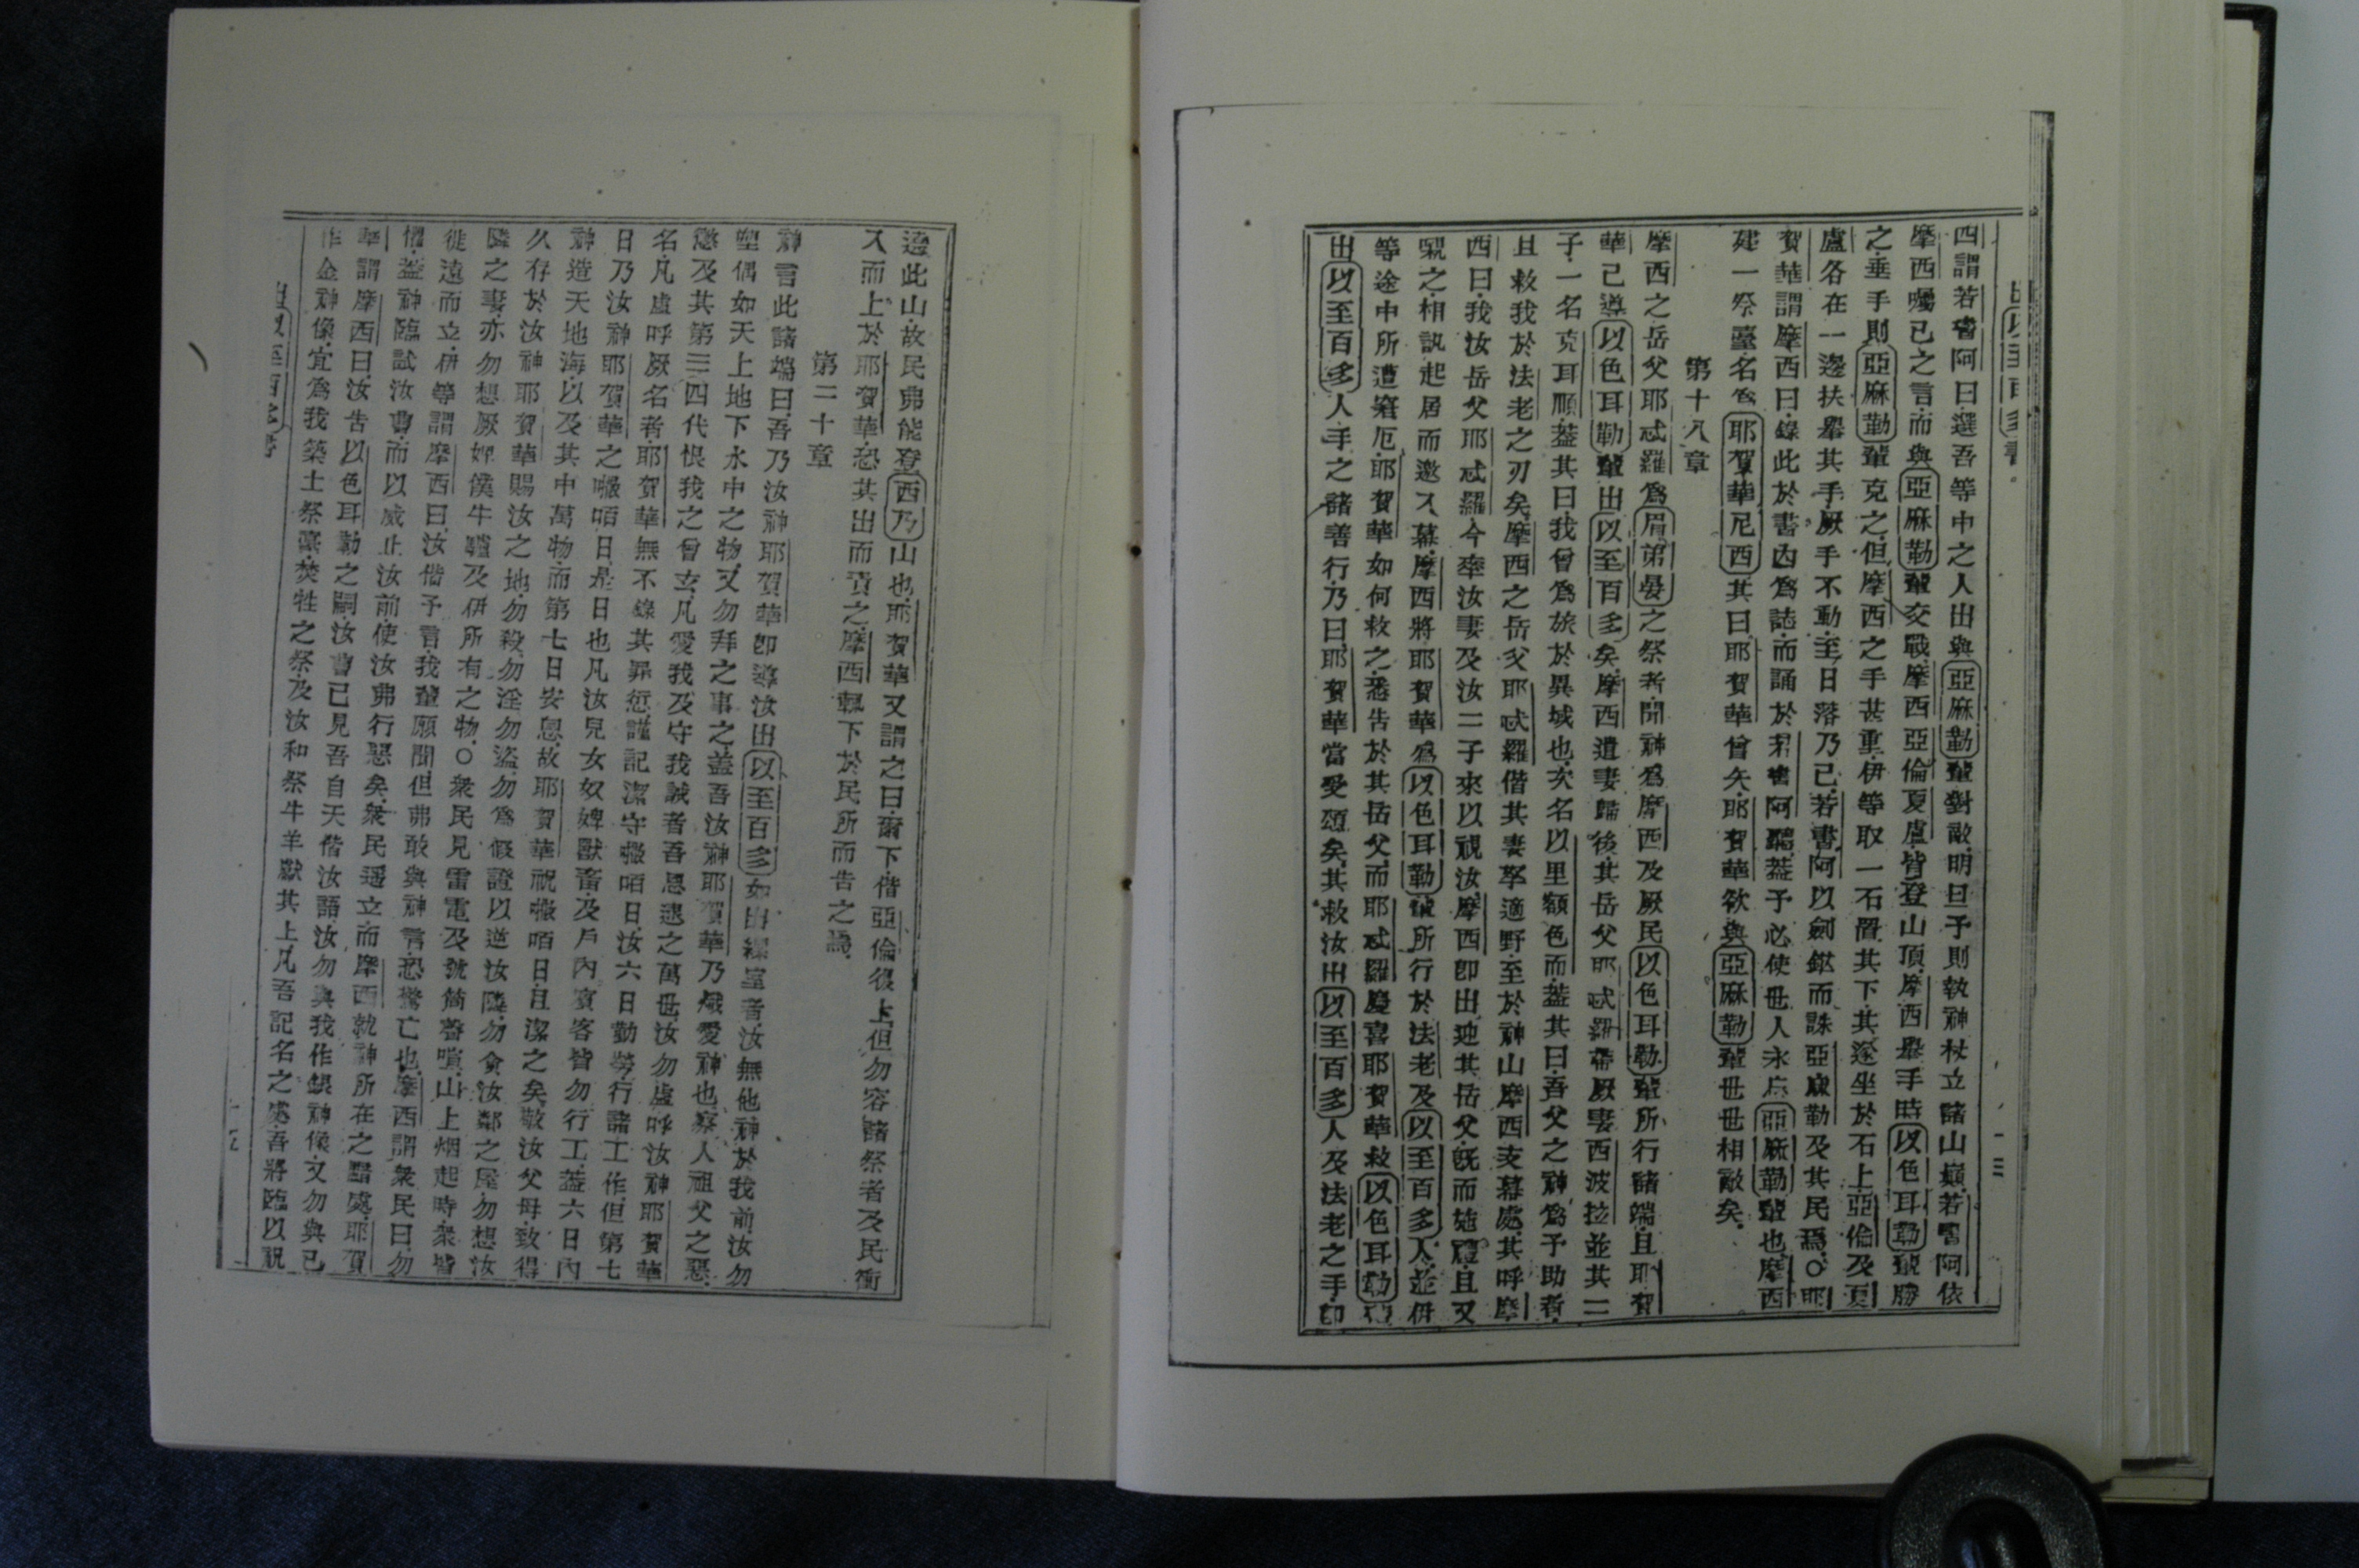 出以至百多書
十三
西謂若書阿曰選吾等中之人出與亞麻勒輩對敵明旦予則執神杖立諸山巔若書阿依
摩西囑己之言而與亞麻勒輩交戰摩西亞倫夏盧皆登山頂摩西舉手時以色耳勒輩勝
之垂手則亞麻勒輩克之但摩西之手甚重伊等取一石置其下其遂坐於石上亞倫及夏
盧各在一邊扶舉其手厥手不動至日落乃已若書阿以劍鋒而誅亞麻勒及其民焉○耶
賀華謂摩西曰錄此於書內為誌而誦於若書阿聽蓋予必使世人永忘亞麻勒輩也摩西
建一祭臺名為耶賀華尼西其曰耶賀華曾矢耶賀華欲與亞麻勒輩世世相敵矣
第十八章
摩西之岳父耶忒羅為眉第晏之祭者聞神為摩西及厥民以色耳勒輩所行諸端且耶賀
華已導以色耳勒輩出以至百多矣摩西遣妻歸後其岳父耶忒羅帶厥妻西波拉並其二
子一名克耳順蓋其曰我曾為旅於異域也次名以里額色而蓋其曰吾父之神為予助者
且救我於法老之刃矣摩西之岳父耶忒羅偕其妻孥適野至於神山摩西支幕處其呼摩
西曰我汝岳父耶忒羅今率汝妻及汝二子來以視汝摩西卽出迎其岳父旣而施禮且又
親之相訊起居而邀入幕摩西將耶賀華為以色耳勒輩所行於法老及以至百多人並伊
等途中所遭窘厄耶賀華如何救之悉告於其岳父而耶忒羅慶喜耶賀華救以色耳勒
出以至百多人手之諸善行乃曰耶賀華當受頌矣其救汝出以至百多人及法老之手卽
遶此山故民弗能登西乃山也耶賀華又謂之曰爾下偕亞倫後上但勿容諸祭者及民衝
入而上於耶賀華恐其出而責之摩西輒下於民所而告之焉
第二十章
神言此諸端曰吾乃汝神耶賀華卽導汝出以至百多如出縲室者汝無他神於我前汝勿
塑偶如天上地下水中之物又勿拜之事之蓋吾汝神耶賀華乃熾愛神也察人祖父之惡
懲及其第三四代恨我之曾玄凡愛我及守我誡者吾恩逮之萬世汝勿虛呼汝神耶賀華
名凡虛呼厥名者耶賀華無不錄其罪愆謹記潔守㘔咟日汝六日勤勞行諸工作但第七
日乃汝神耶賀華之㘔咟日是日也凡汝兒女奴婢獸畜及戶內賓客皆勿行工蓋六日內
神造天地海以及其中萬物而第七日安息故耶賀華祝㘔咟日且潔之矣敬汝父母致得
久存於汝神耶賀華賜汝之地勿殺勿淫勿盜勿為假證以逆汝隣勿貪汝鄰之屋勿想汝
隣之妻亦勿想厥婢僕牛驢及伊所有之物○衆民見雷電及號筒聲喧山上烟起時衆皆
徙遠而立伊等謂摩西曰汝偕予言我輩願聞但弗敢與神言恐驚亡也摩西謂衆民曰勿
懼蓋神臨試汝曹而以威止汝前使汝弗行惡矣衆民遥立而摩西就神所在之黯處耶賀
華謂摩西曰汝告以色耳勒之嗣汝曹已見吾自天偕汝語汝勿與我作銀神像又勿與已
作金神像宜為我築土祭臺焚牲之祭及汝和祭牛羊獻其上凡吾記名之處吾將臨以祝
出以至百多書
十五